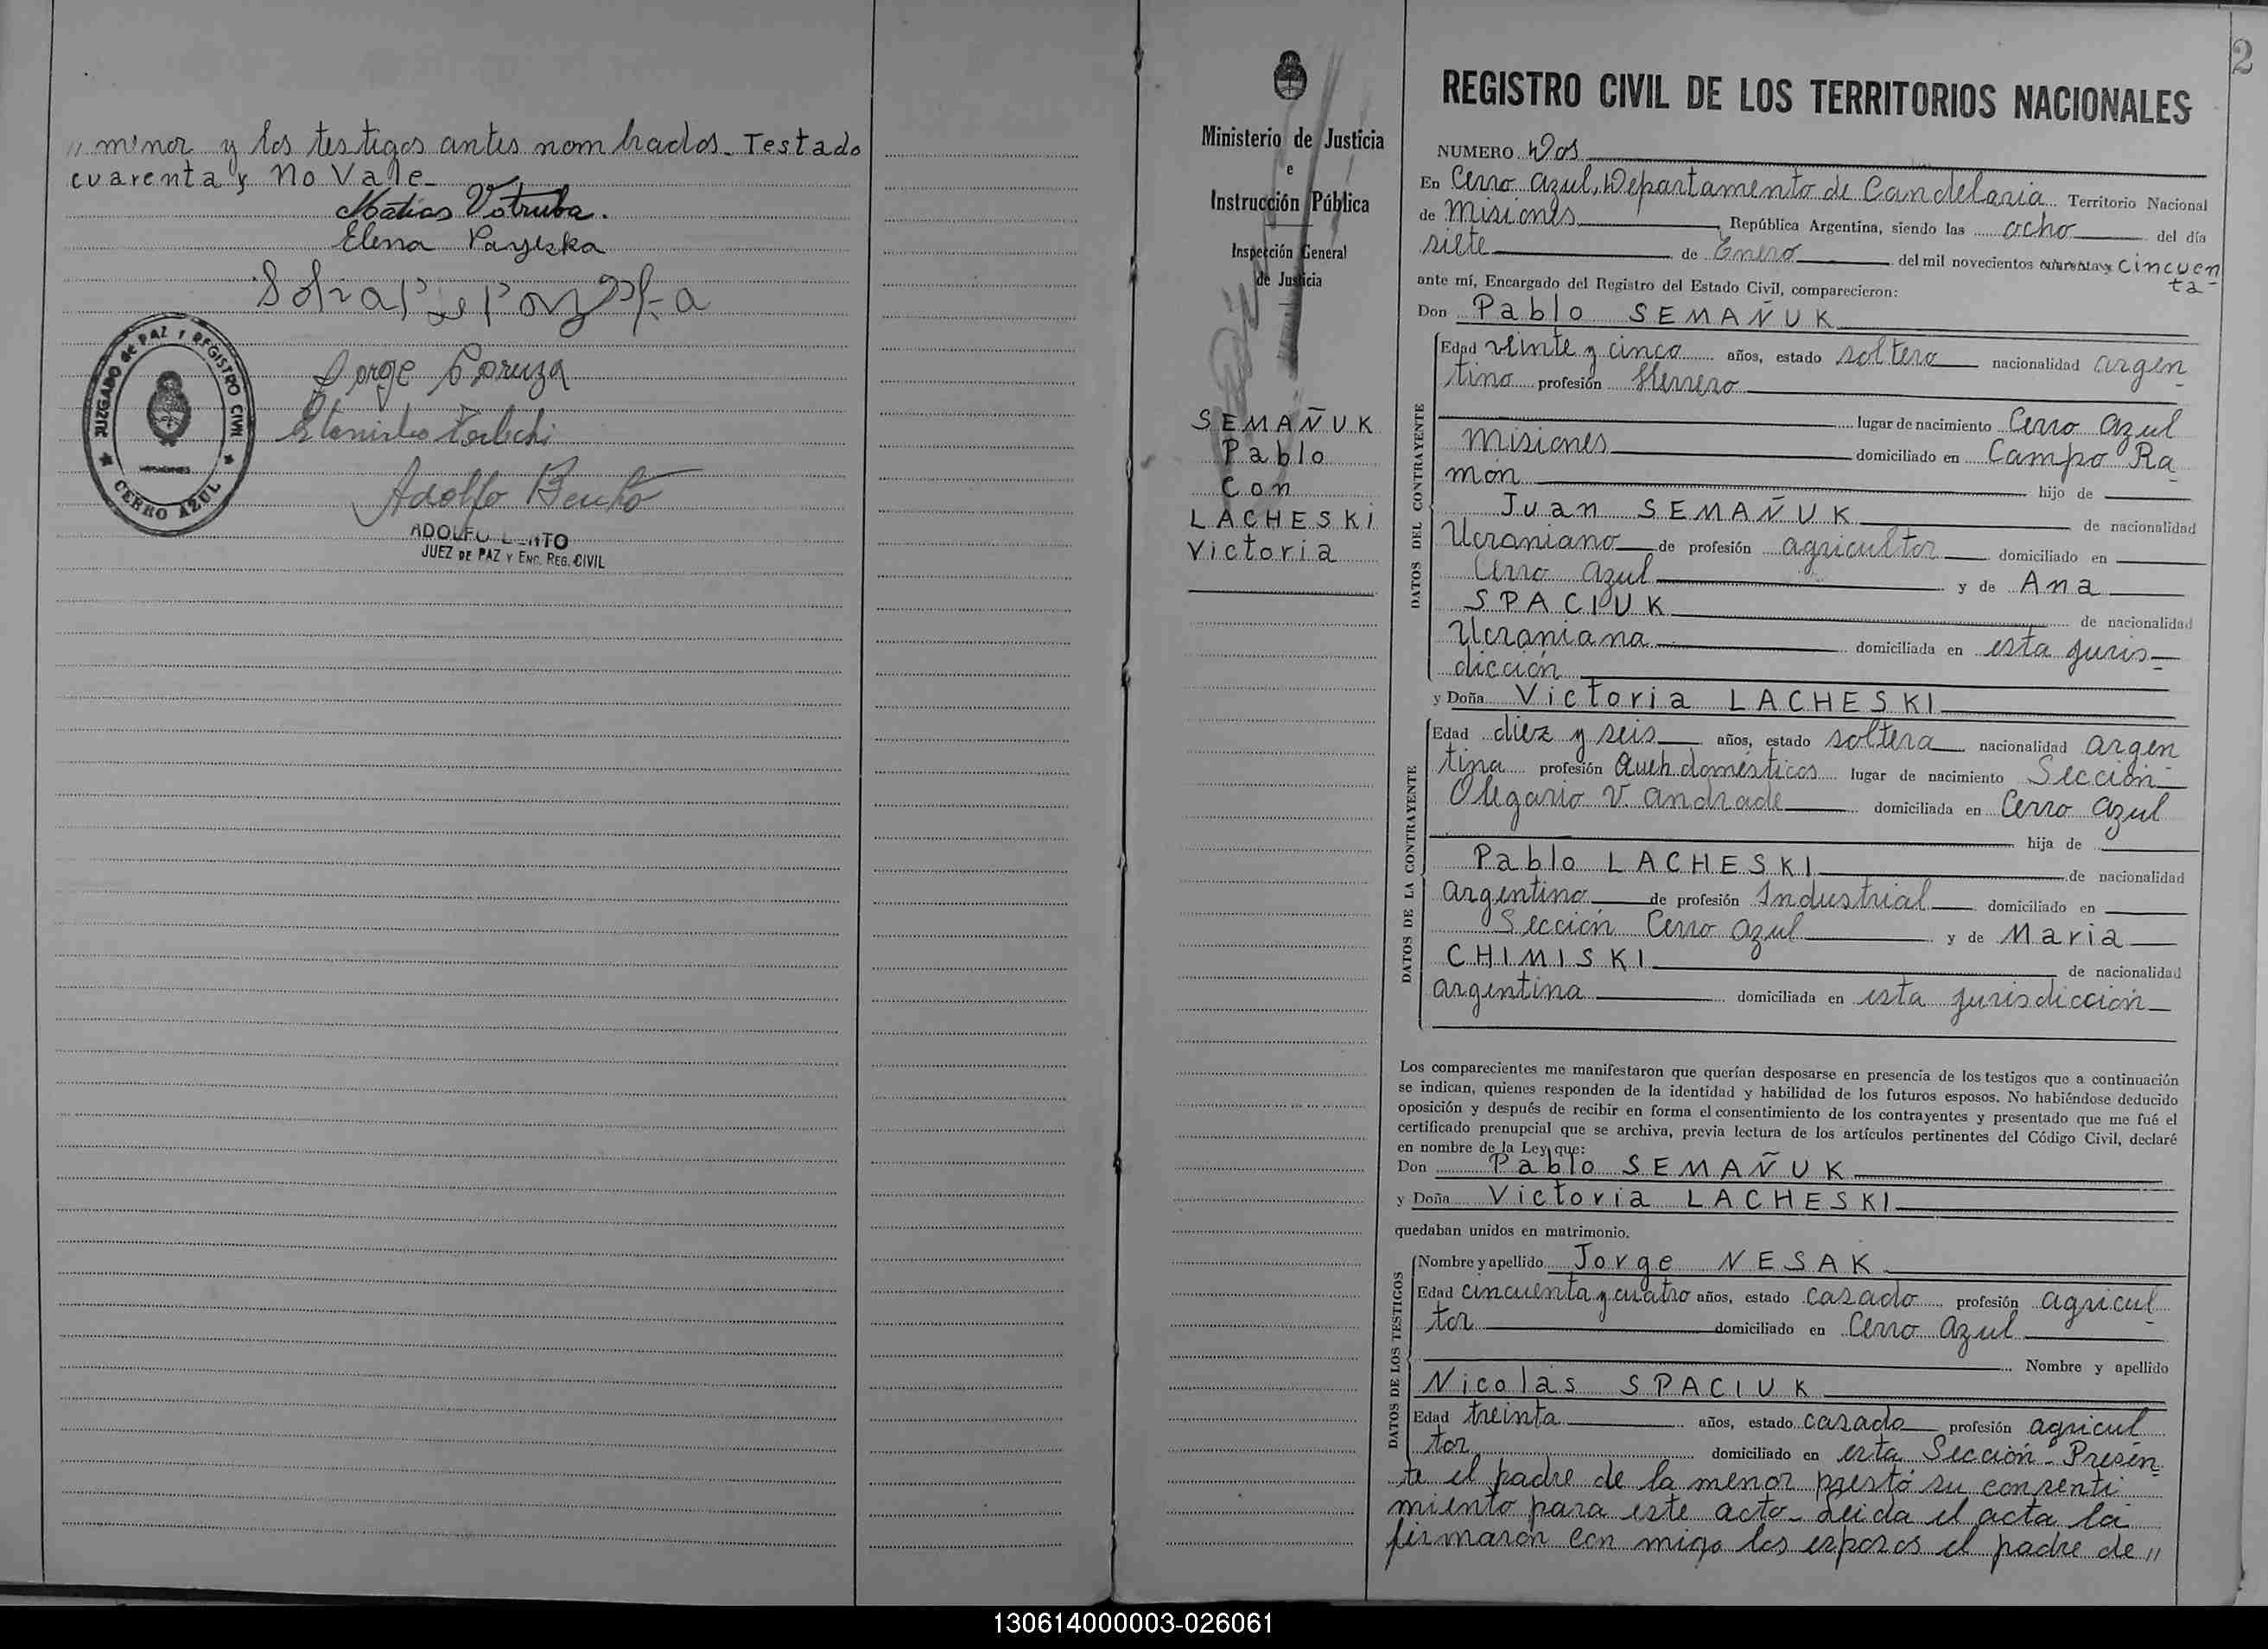 〃 menor y los testigos antes nombrados_Testado
cuarenta y No Vale_
Matias Votruba.
Elena Payeska
Jorge
Adolfo Bento
JUZGADO DE PAZ Y REGISTRO CIVIL
MISIONES
CERRO AZUL
ADOLFO BENTO
JUEZ DE PAZ Y ENC. REG. CIVIL
2
Ministerio de Justicia
e
Instrucción Pública
Inspección General
de Justicia
SEMAÑUK
Pablo
Con
LACHESKI
Victoria
REGISTRO CIVIL DE LOS TERRITORIOS NACIONALES
NUMERO Dos
En Cerro Azul, Departamento de Candelaria Territorio Nacional
de Misiones República Argentina, siendo las ocho del día
siete de Enero del mil novecientos cuarenta y cincuen
ta-
ante mí, Encargado del Registro del Estado Civil, comparecieron:
Don Pablo SEMAÑUK
DATOS DEL CONTRAYENTE
Edad veinte y cinco años, estado soltero nacionalidad argen
tino profesión Herrero
lugar de nacimiento Cerro Azul
Misiones domiciliado en Campo Ra
món hijo de
Juan SEMAÑUK de nacionalidad
Ucraniano de profesión agricultor domiciliado en
Cerro Azul y de Ana
SPACIUK de nacionalidad
Ucraniana domiciliada en esta juris-
dicción
y Doña Victoria LACHESKI
DATOS DE LA CONTRAYENTE
Edad diez y seis años, estado soltera nacionalidad argen
tina profesión Queh. domésticos lugar de nacimiento Sección
Olegario V. Andrade domiciliada en Cerro Azul
hija de
Pablo LACHESKI de nacionalidad
argentino de profesión Industrial domiciliado en
Sección Cerro Azul y de Maria
CHIMISKI de nacionalidad
argentina domiciliada en esta jurisdicción
Los comparecientes me manifestaron que querían desposarse en presencia de los testigos que a continuación
se indican, quienes responden de la identidad y habilidad de los futuros esposos. No habiéndose deducido
oposición y después de recibir en forma el consentimiento de los contrayentes y presentado que me fué el
certificado prenupcial que se archiva, previa lectura de los artículos pertinentes del Código Civil, declaré
en nombre de la Ley que:
Don Pablo SEMAÑUK
y Doña Victoria LACHESKI
quedaban unidos en matrimonio.
DATOS DE LOS TESTIGOS
Nombre y apellido Jorge NESAK
Edad cincuenta y cuatro años, estado casado profesión agricul
tor domiciliado en Cerro Azul
Nombre y apellido
Nicolás SPACIUK
Edad treinta años, estado casado profesión agricul
tor domiciliado en esta Sección_Presen
te el padre de la menor prestó su consenti
miento para este acto_Leida el acta la
firmaron con migo los esposos el padre de 〃
130614000003-026061